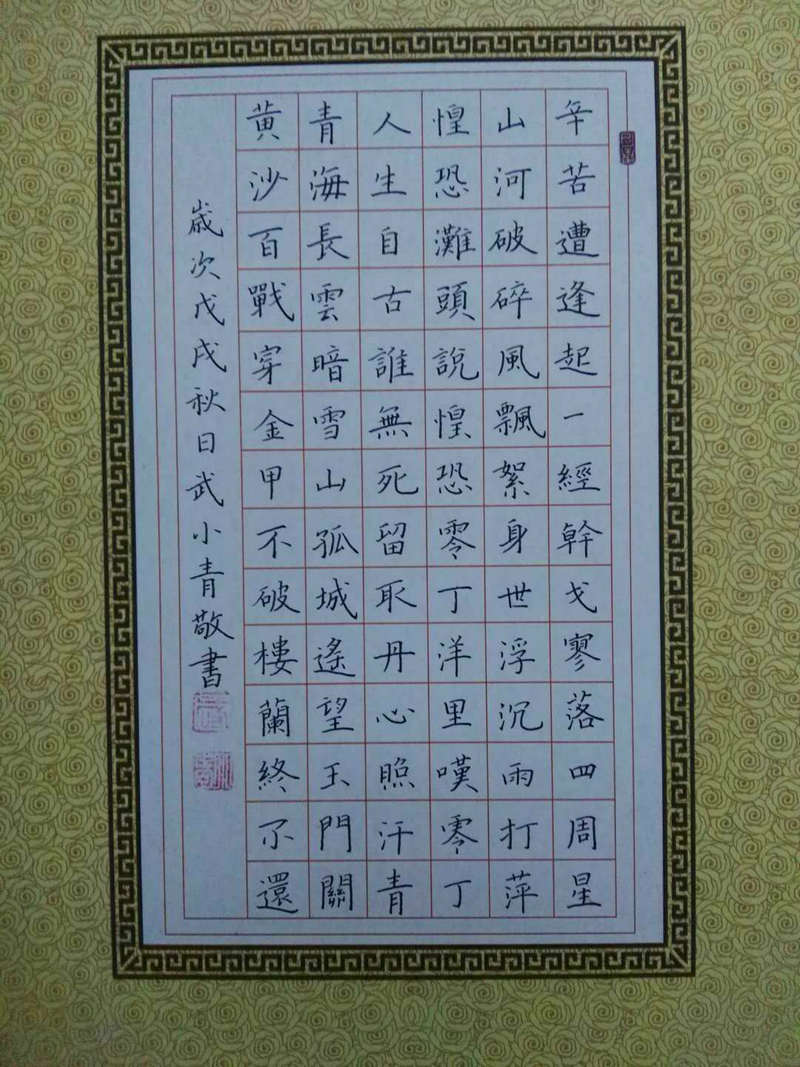 辛苦遭逢起一經幹戈寥落四周星
山河破碎風飄絮身世浮沉雨打萍
惶恐灘頭說惶恐零丁洋里嘆零丁
人生自古誰無死留取丹心照汗青
青海長雲暗雪山孤城遙望玉門關
黃沙百戰穿金甲不破樓蘭終不還
歲次戊戌秋日武小青敬書